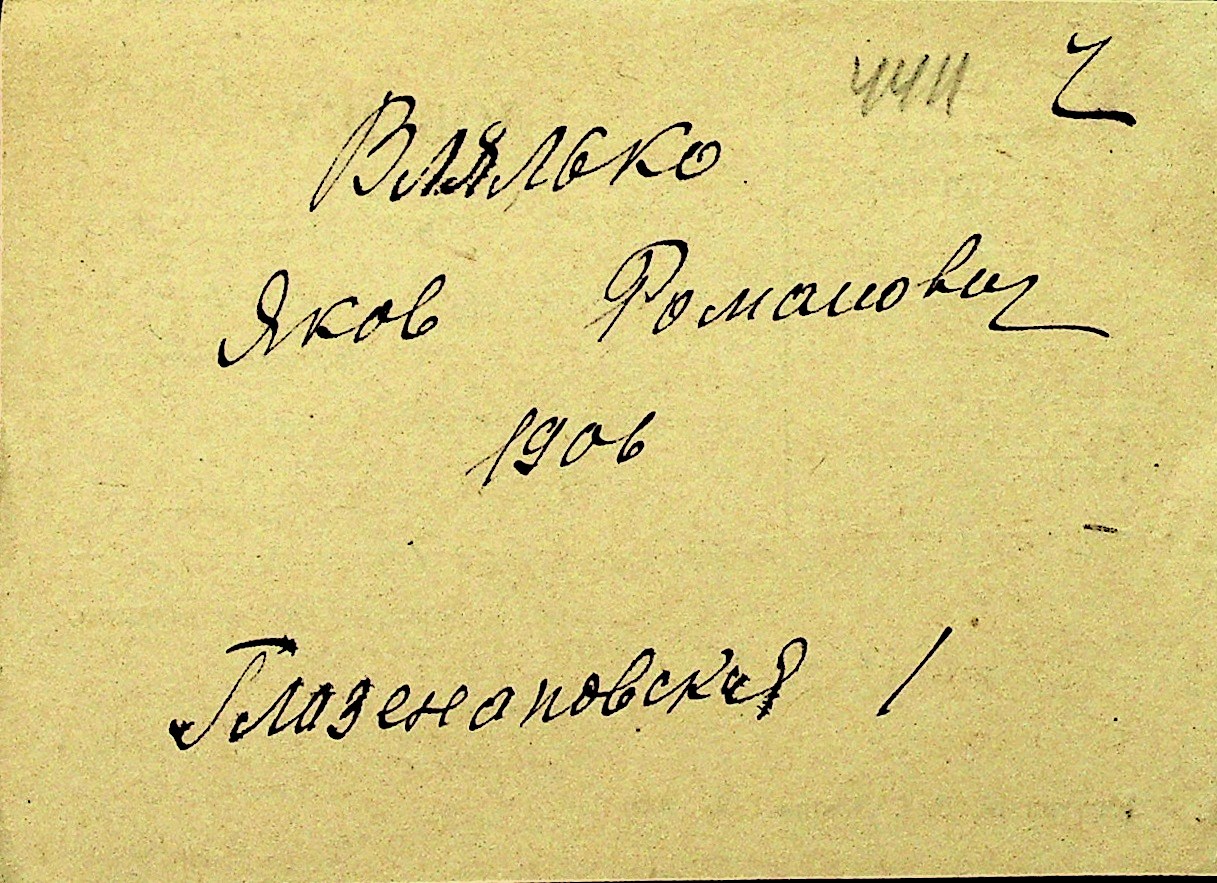 4411 ч
Влялько
Яков Романович
1906
Глазенаповская 1